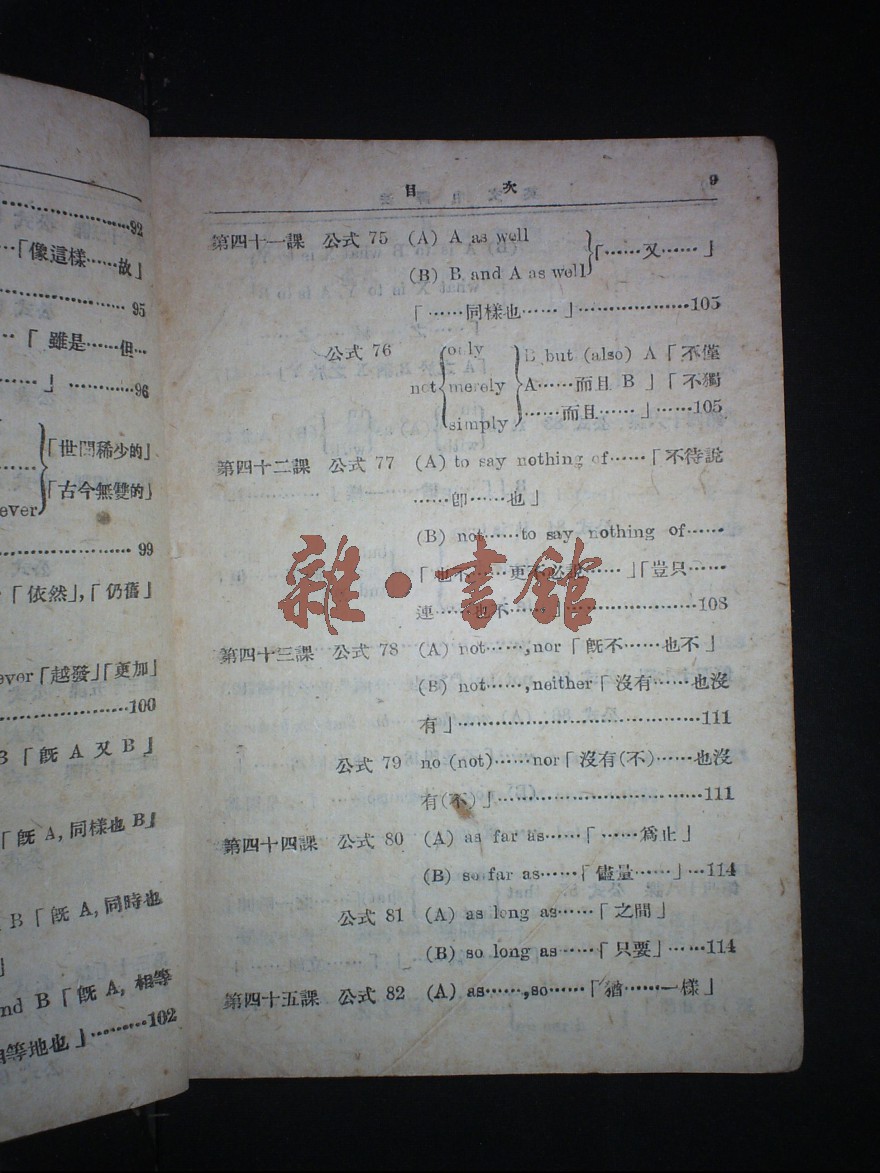 ……92
……「像這樣……故」
……95
……「雖是……但…
……」……96
「世間稀少的」
……
「古今無雙的」
ever
……99
「依然」,「仍舊」
ever「越發」「更加」
……100
B「旣 A 又 B」
「旣 A, 同樣也 B」
B「旣 A, 同時也
」
nd B「旣 A, 相等
相等地也」……102
目 次 9
第四十一課 公式 75 (A) A as well
「……又……」
(B) B and A as well
「……同樣也……」……105
公式 76 only
not merely B but (also) A「不僅
A……而且 B」「不獨
simply ……而且……」……105
第四十二課 公式 77 (A) to say nothing of……「不待說
……卽……也」
(B) not……to say nothing of……
「也不……更不必說……」「豈只……
連……也不……」……108
第四十三課 公式 78 (A) not……,nor「旣不……也不」
(B) not……,neither「沒有……也沒
有」……111
公式 79 no (not)……nor「沒有(不)……也沒
有(不)」……111
第四十四課 公式 80 (A) as far as……「……爲止」
(B) so far as……「儘量……」…114
公式 81 (A) as long as……「之間」
(B) so long as……「只要」……114
第四十五課 公式 82 (A) as……,so……「猶……一樣」
雜·書館